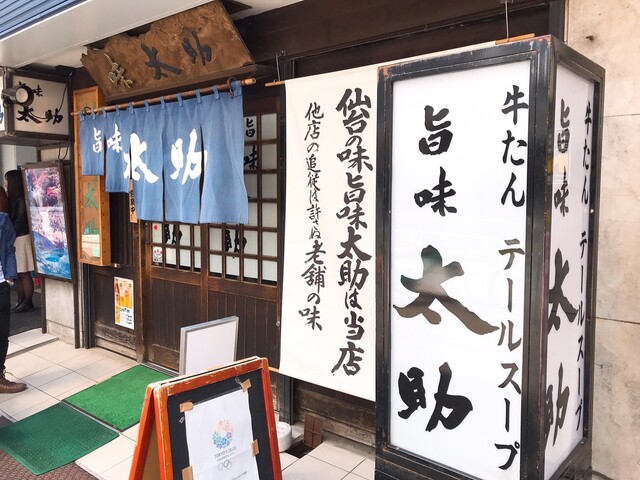 味 太助
味
太助
旨味 太助
太助
仙台の味旨味太助は当店
他店の追従は許さぬ老舗の味
牛たん テールスープ
旨味 太助
牛たん テールスープ
旨味 太助